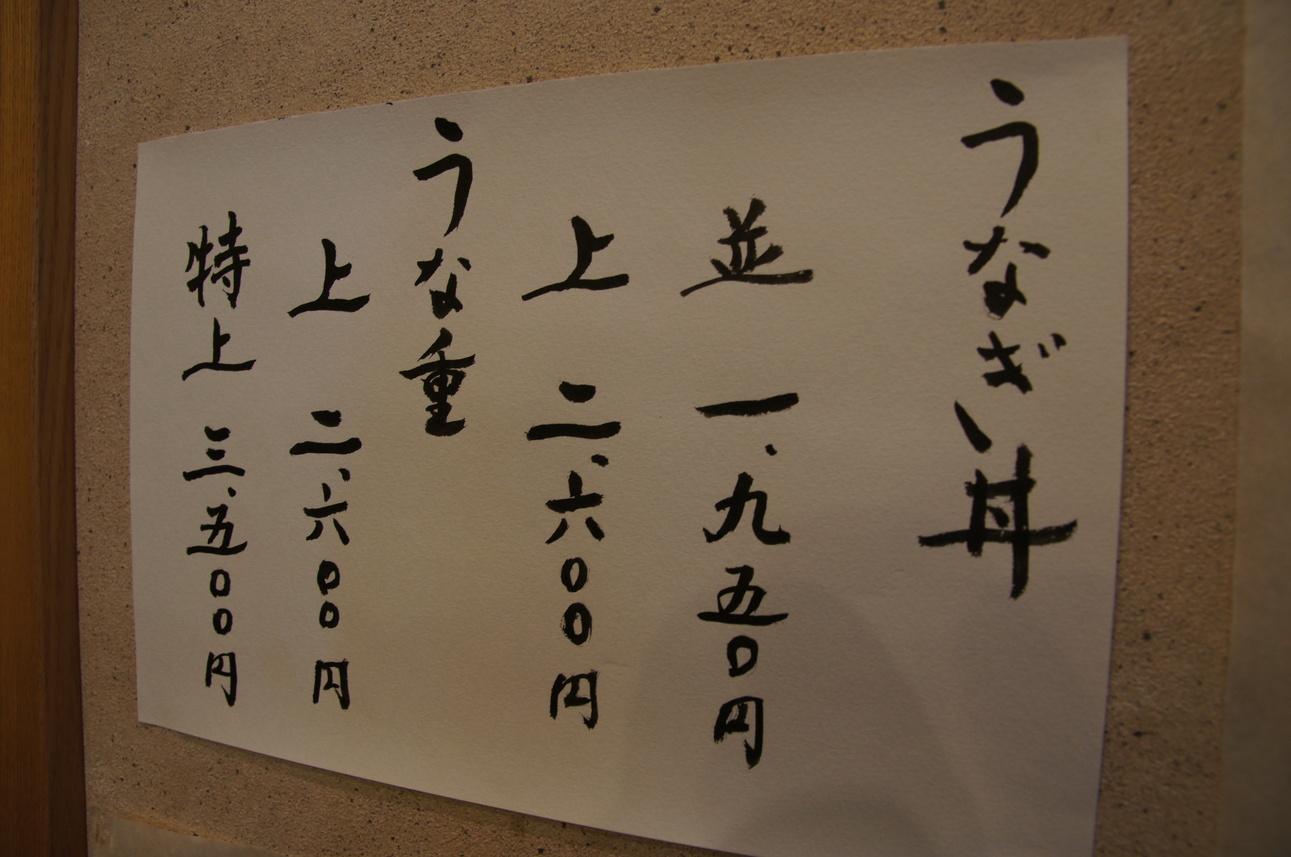 うなぎ丼
並 一、九五〇円
上 二、六〇〇円
うな重
上 二、六〇〇円
特上 三、五〇〇円